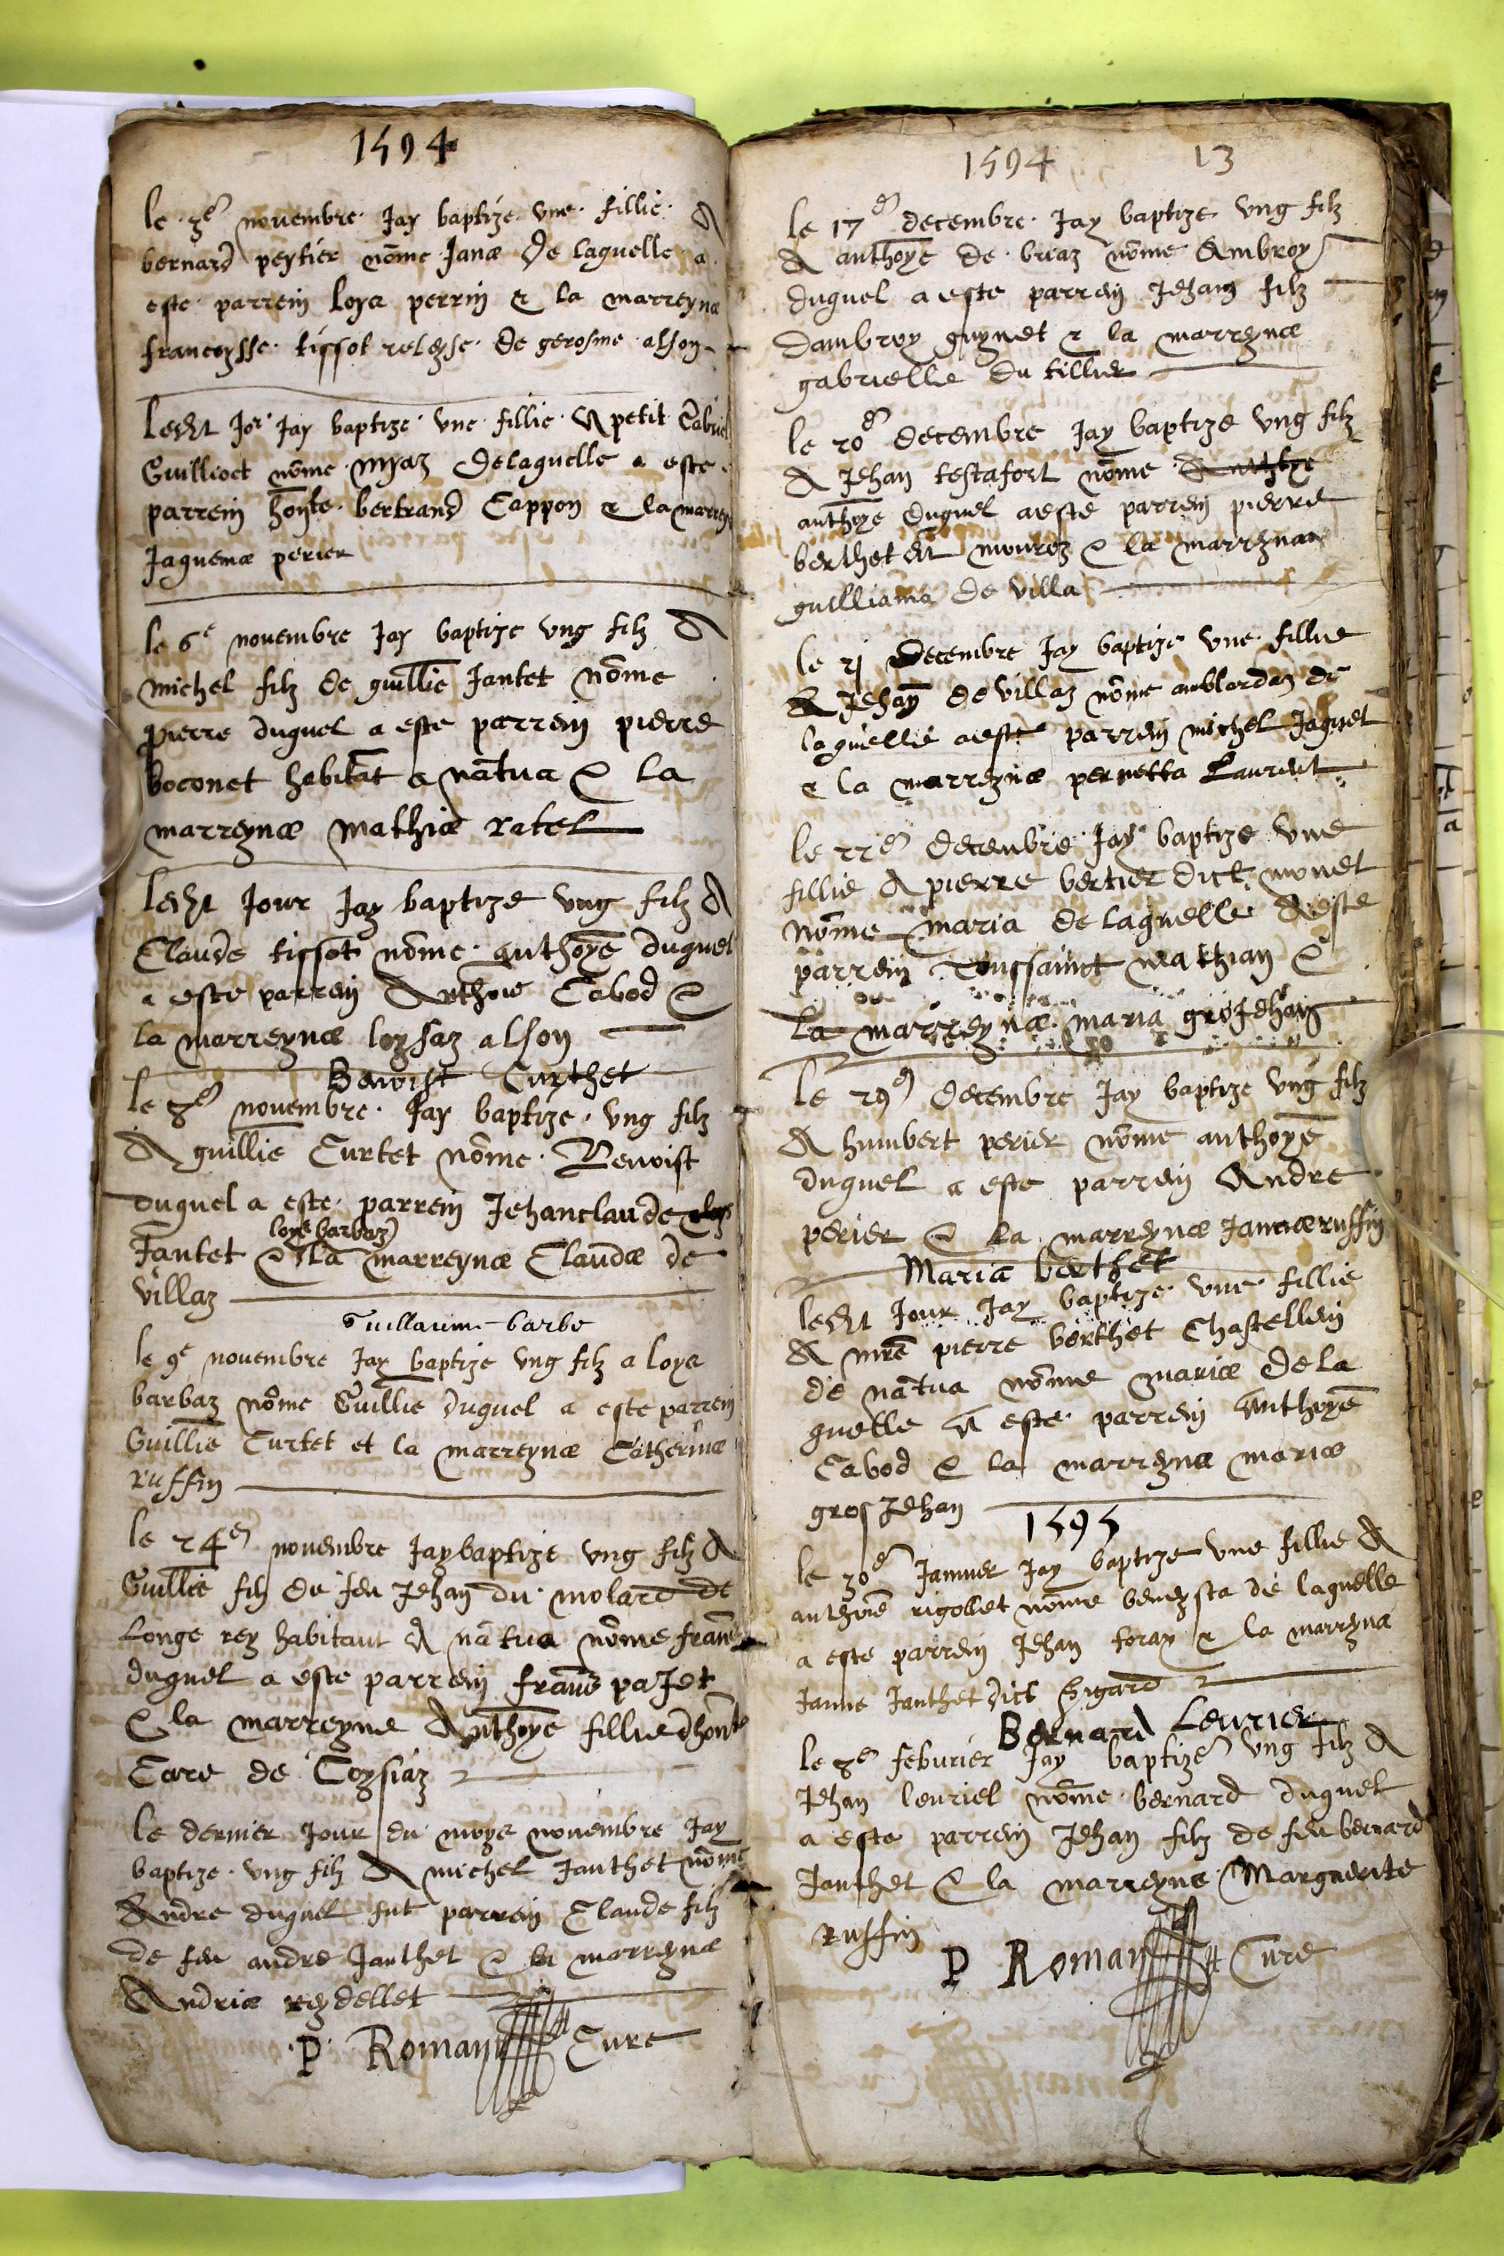 1594
le 3e novembre Jay baptize une fillie A
bernard peytier nōme Janæ de laquelle a
este parrein loys perrin & la marreynæ
francoysse tissot relayse de gerosme alson
Ledit Jor Jay baptize une fillie A petit Gabriel
Guillioct nōme myaz delaquelle a este
parrein honte bertrand Cappon & la marreyn
Jaquemæ perier
le 6e novembre Jay baptize ung filz A
michel filz de guillie Jantet nōme
pierre duquel a este parrein pierre
boconet habitāt a nātua & la
marreynæ mathiæ ratel
Ledit Jour Jay baptize ung filz A
Claude tissot nōme anthoyē duquel
a este parrein Anthoie Cabod &
la marreynæ loysaz alson
Benoist Curthet
le 8e novembre Jay baptize ung filz
A guillie Curtet nōme Benoist
duquel a este parrein Jehanclaude
loys barbaz
Jantet & la marreynæ Claudæ de
villaz
Guillaume barbe
le 9e novembre Jay baptize ung filz a loys
barbaz nōme Guillie duquel a este parrein
Guillie Curtet et la marreynæ Catherinæ
ruffin
le 24e novembre Jay baptize ung filz A
Guillie filz de feu Jehan du molard de
Longe rey habitant A nātua nōme franc
duquel a este parrein franc paJet
& la marreyne Anthoye fillie dhonte
Care de Coysiaz
le dernier Jour du moys novembre Jay
baptize ung filz A michel Janthet nōme
Andre duquel fut parrein Claude filz
de feu andre Janthet & la marreynæ
Andriæ reydellet
P Roman Cure
1594 13
le 17e decembre Jay baptize ung filz
A anthoye de briaz nōme Ambroy
duquel a este parrein Jehan filz
dambroy guynet & la marreynæ
gabrielle du tillier
le 20e decembre Jay baptize ung filz
A Jehan testafort nōme
anthoye duquel a este parrein pierre
berthet dit mourez & la marreynaz
guilliama de villa
le 21 decembre Jay baptize une fillie
A Jehan de villaz nōme amblardaz de
laquelle a este parrein michel Jaquet
& la marreynæ pernetta Laurent
le 22e decembre Jay baptize une
fillie A pierre bertier dict monet
nōme maria de laquelle A este
parrein Toussainct &
la marreynæ maria groJehan
le 29e decembre Jay baptize ung filz
A humbert perier nōme anthoyē
duquel a este parrein Andre
perier & la marreynæ Jannæ ruffin
Maria berthet
ledit Jour Jay baptize une fillie
A mre pierre berthet Chastellein
de nātua nōme mariæ de la
quelle A este parrein Anthoyē
Cabod & la marreynæ mariæ
grosJehan
1595
le 30e Janvier Jay baptize une fillie A
anthoie rigollet nōme beneysta de laquelle
a este parrein Jehan foray & la marreyna
Janne Janthet dict
Bernard Levrier
le 8e feburier Jay baptize ung filz A
Jehan levriel nōme bernard duquel
a este parrein Jehan filz de feu bernard
Janthet & la marreyne Marguerite
Ruffin
P Roman Cure